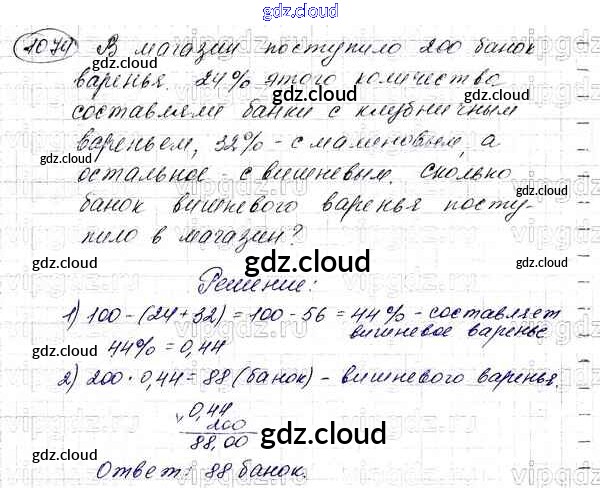 gdz.cloud
1074 В магазин поступило 200 банок
варенья. 24% этого количества
составляли банки с клубничным
вареньем, 32% - с малиновым, а
остальное - с вишневым. Сколько
банок вишневого варенья посту-
пило в магазин?
Решение:
1) 100-(24+32)=100-56=44%-составляет
вишневое варенье
44%=0,44
2) 200·0,44=88 (банок) - вишневого варенья.
0,44
200
88,00
Ответ: 88 банок.
gdz.cloud